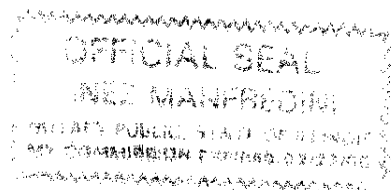 OFFICIAL SEAL
INEZ MANFREDINI
NOTARY PUBLIC, STATE OF ILLINOIS
MY COMMISSION EXPIRES